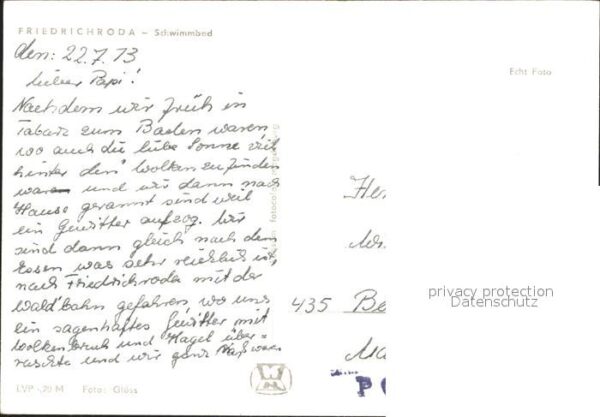 FRIEDRICHRODA - Schwimmbad
den: 22.7.73
Lieber Papi!
Nachdem wir früh in
Tabarz zum Baden waren
wo auch die liebe Sonne viel
hinter den Wolken zu finden
war und wir dann nach
Hause gerannt sind weil
ein Gewitter aufzog. Wir
sind dann gleich nach dem
Essen was sehr reichlich ist,
nach Friedrichroda mit der
Waldbahn gefahren wo uns
ein sagenhaftes Gewitter mit
Wolkenbruch und Hagel über-
raschte und wir ganz naß waren
LVP -,20 M Foto: Gläss
Echt Foto
435 Be
privacy protection
Datenschutz